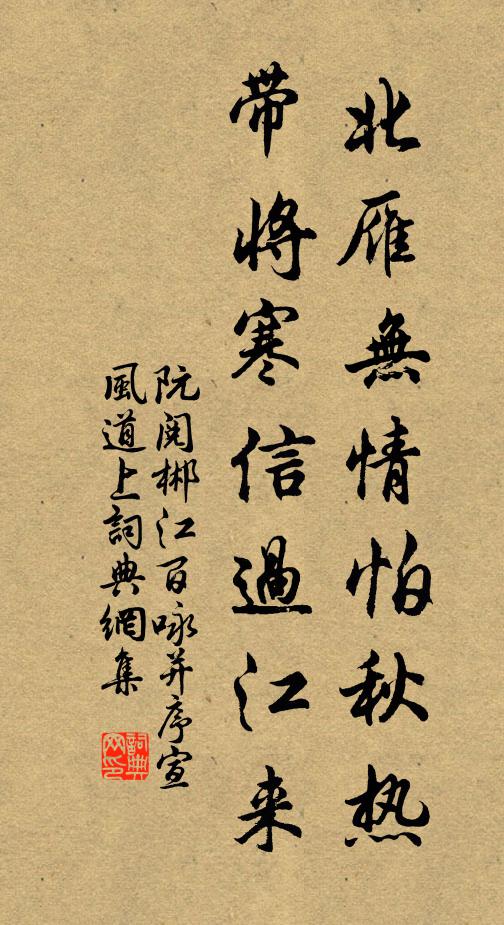 北雁無情怕秋热
带将寒信過江来
阮阅郴江百咏并序宣
風道上詞典網集
詞典
网印